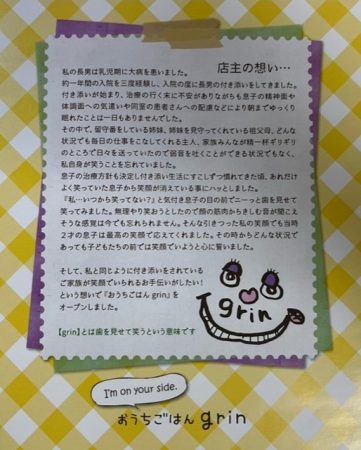 店主の想い…
私の長男は乳児期に大病を患いました。
約一年間の入院を三度経験し、入院の度に長男の付き添いをしてきました。
付き添いが始まり、治療の行く末に不安がありながらも息子の精神面や
体調面への気遣いや同室の患者さんへの配慮などにより朝までゆっくり
眠れたことは一日もありませんでした。
その中で、留守番をしている姉妹、姉妹を見守ってくれている祖父母、どんな
状況でも毎日の仕事をこなしてくれる主人、家族みんなが精一杯ギリギリ
のところで日々を送っていたので弱音を吐くことができる状況でもなく、
私自身が笑うことを忘れていました。
息子の治療方針も決定し付き添い生活にすこしずつ慣れてきた頃、あれだけ
よく笑っていた息子から笑顔が消えている事にハッとしました。
『私…いつから笑ってない？』と気付き息子の目の前でニーっと歯を見せて
笑ってみました。無理やり笑おうとしたので顔の筋肉からきしむ音が聞こえ
そうな感覚は今でも忘れられません。そんな引きつった私の笑顔でも当時
2才の息子は最高の笑顔で応えてくれました。その時からどんな状況で
あっても子どもたちの前では笑顔でいようと心に誓いました。
そして、私と同じように付き添いをされている
ご家族が笑顔でいられるお手伝いがしたい！
という想いで『おうちごはん grin』を
オープンしました。
【grin】とは歯を見せて笑うという意味です
grin
I'm on your side.
おうちごはん grin